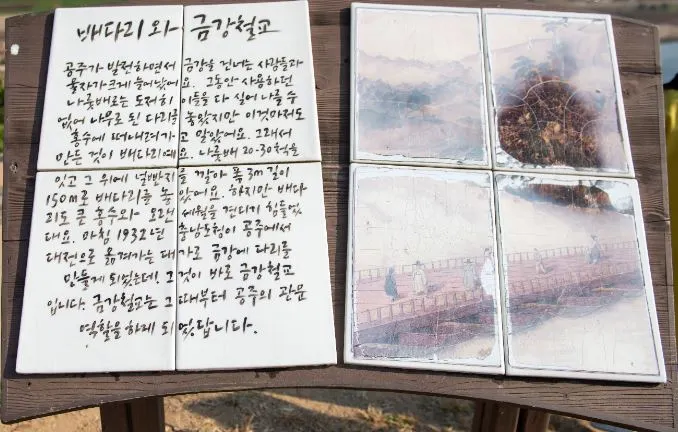 배다리와 금강철교
공주가 발전하면서 금강을 건너는 사람들과
물자가 크게 늘어났어요. 그동안 사용하던
나룻배로는 도저히 이들을 다 실어 나를 수
없어 나무로 된 다리를 놓았지만 이것마저도
홍수에 떠내려가고 말았어요. 그래서
만든 것이 배다리예요. 나룻배 20-30척을
잇고 그 위에 널빤지를 깔아 폭 3m 길이
150m로 배다리를 놓았어요. 하지만 배다
리도 큰 홍수와 오랜 세월을 견디기 힘들었
대요. 마침 1932년 충남도청이 공주에서
대전으로 옮겨가는 대가로 금강에 다리를
만들게 되었는데! 그것이 바로 금강철교
입니다. 금강철교는 그때부터 공주의 관문
역할을 하게 되었답니다.